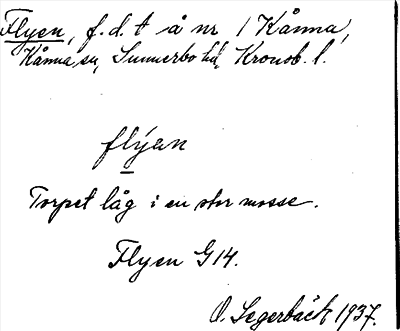 Flyen, f.d. t å nr 1 Kånna,
Kånna sn, Sunnerbo hd, Kronob. l.
flýen
Torpet låg i en stor mosse.
Flyen G14.
O. Segerbäck 1937.